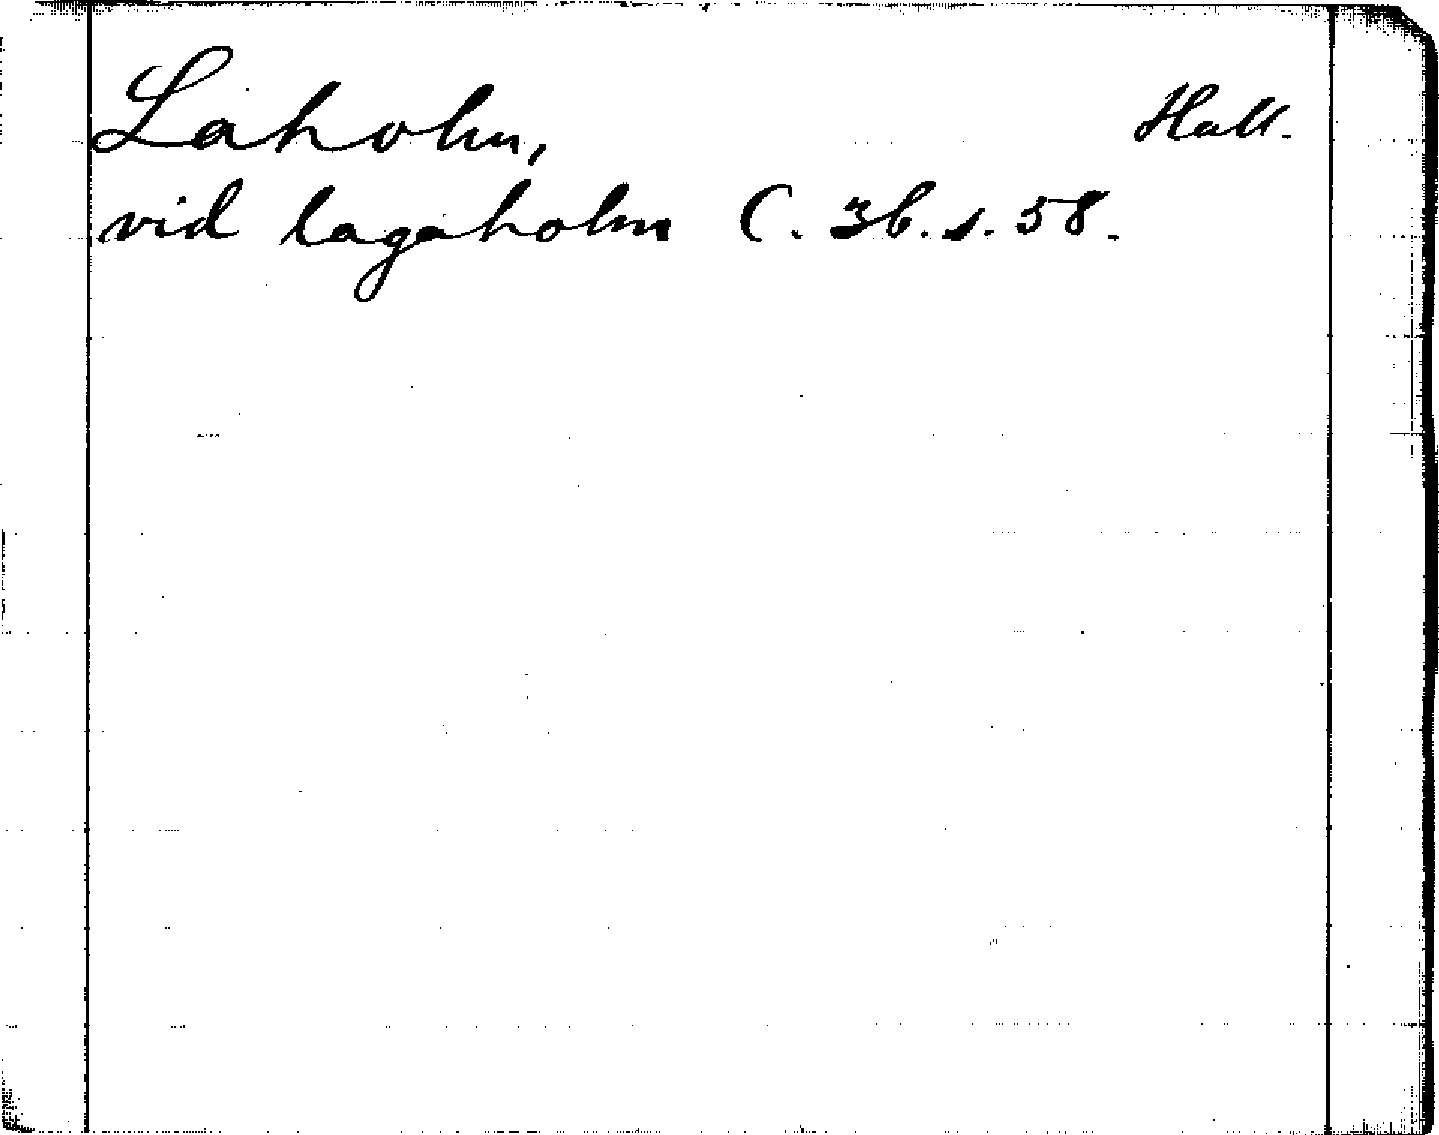 Laholm, Hall.
vid lagaholm C. 3b. s. 58.